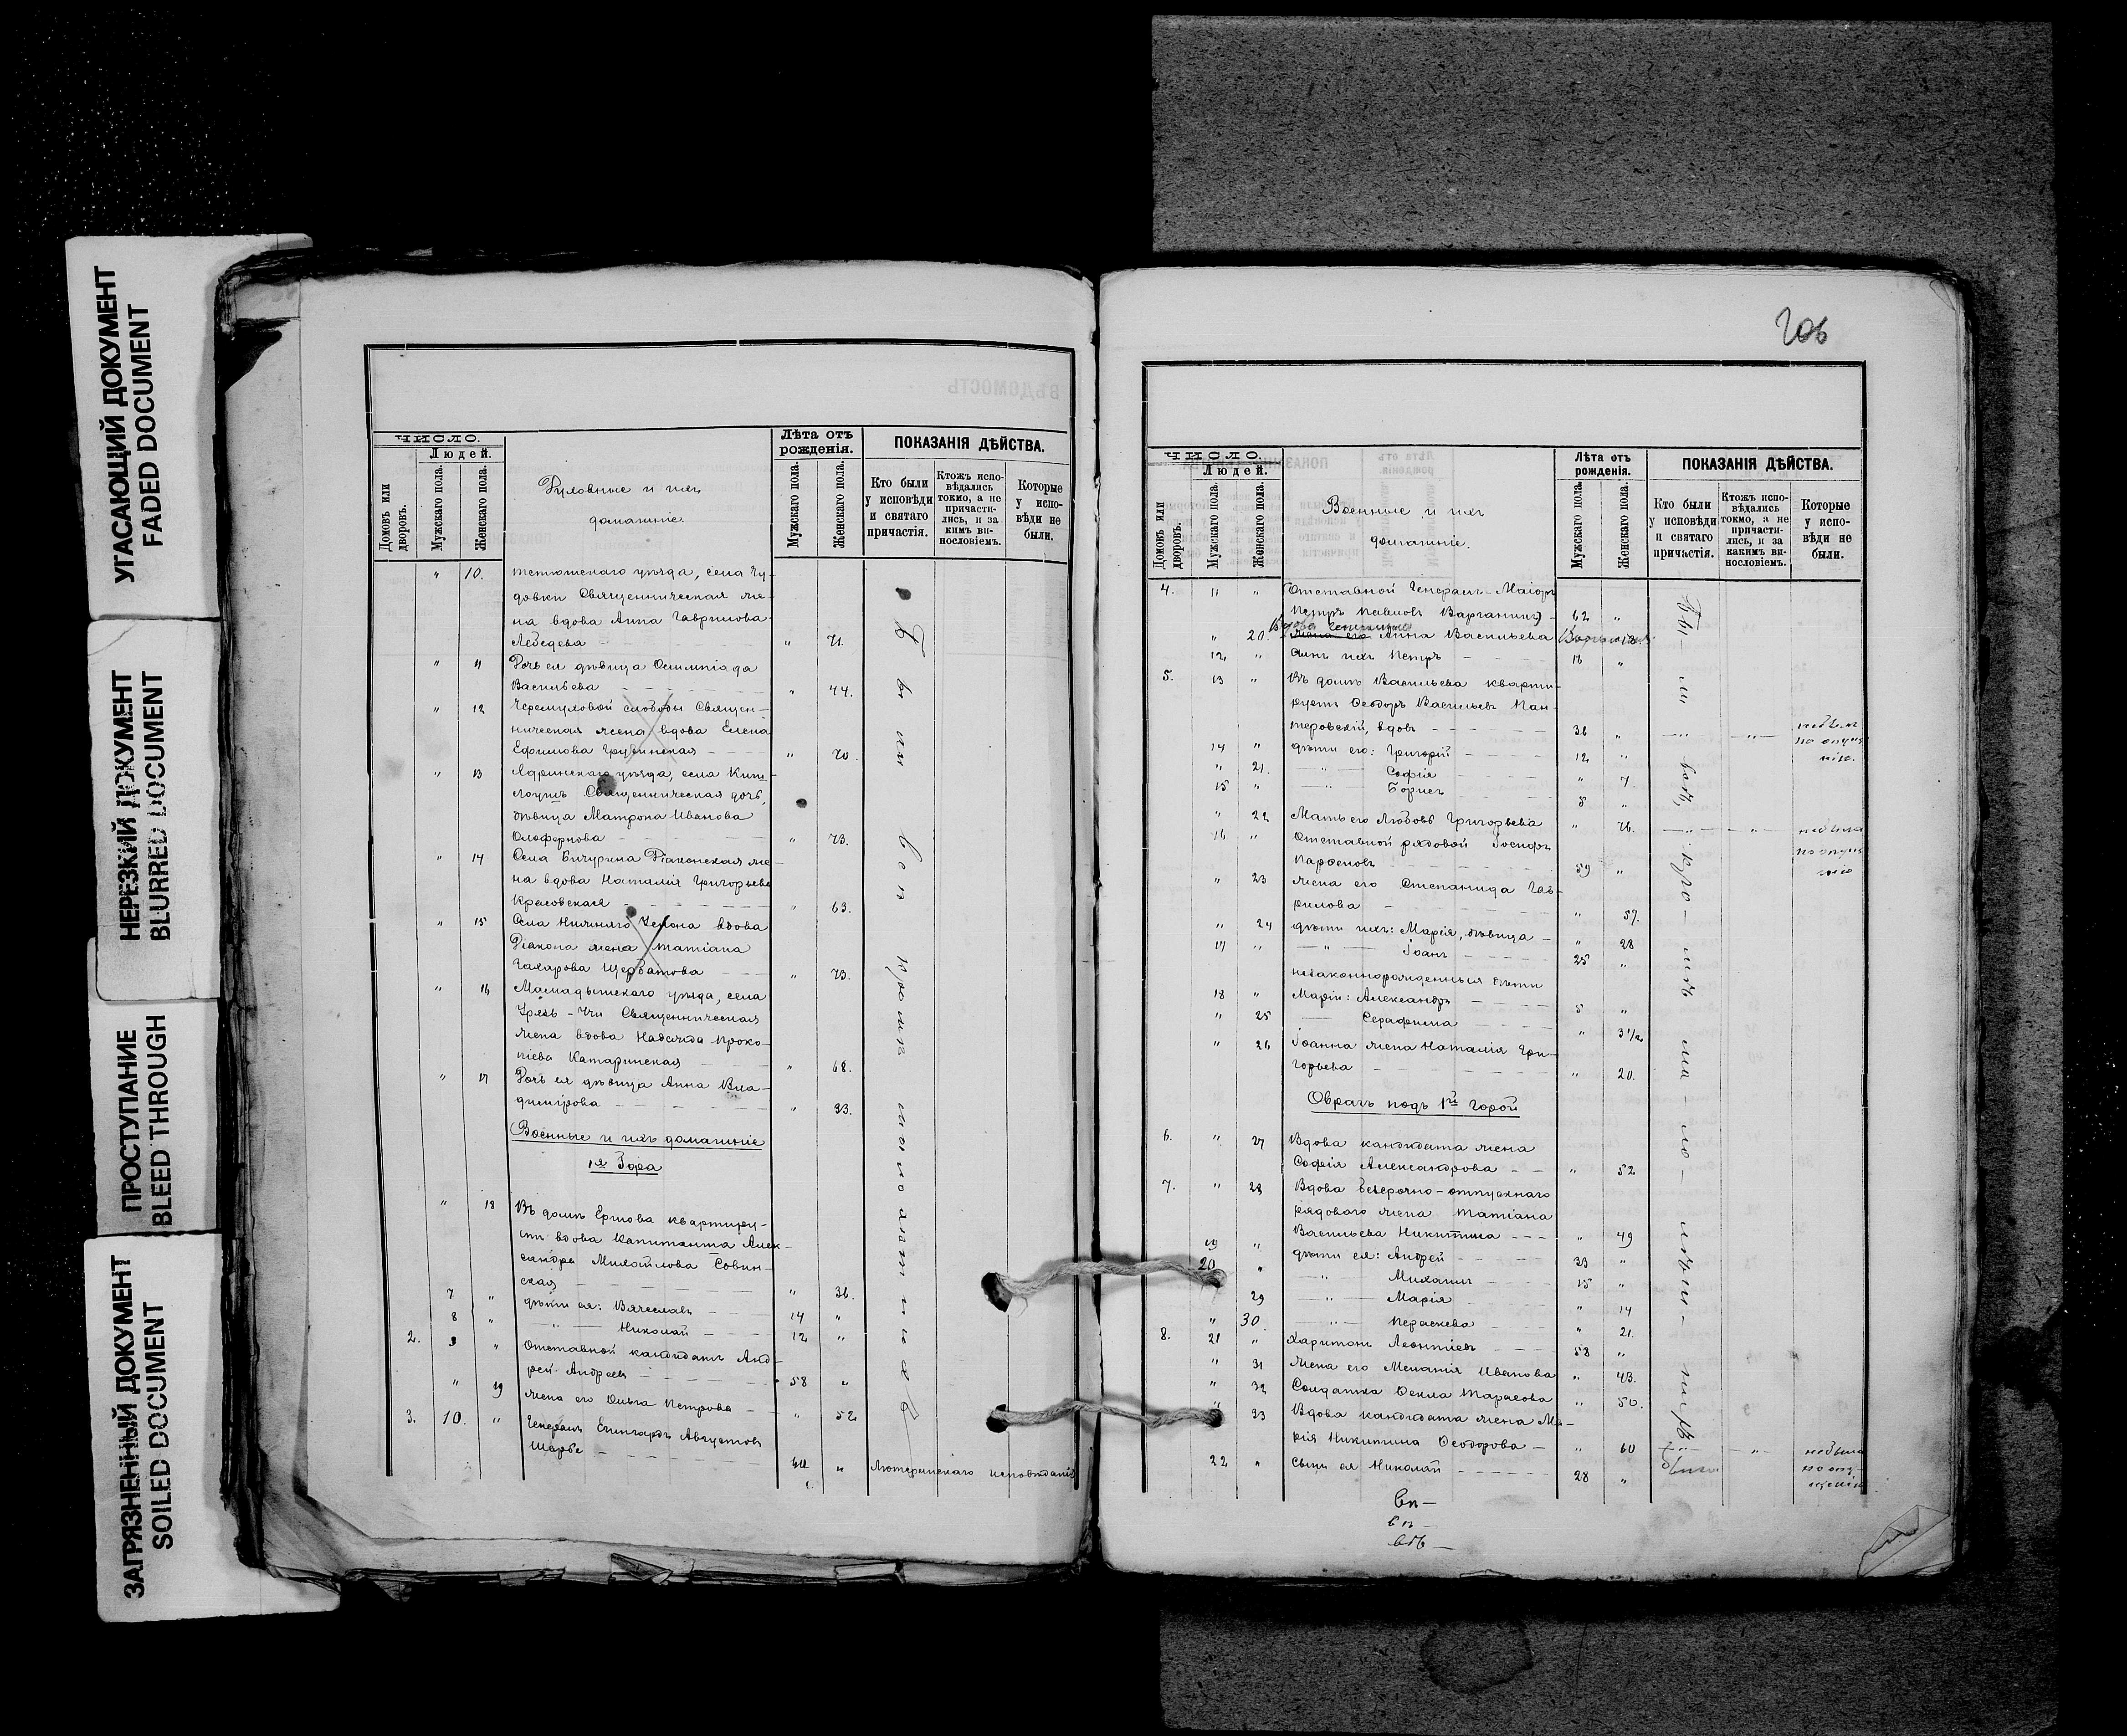 УГАСАЮЩИЙ ДОКУМЕНТ
FADED DOCUMENT
НЕРЕЗКИЙ ДОКУМЕНТ
BLURRED DOCUMENT
ПРОСТУПАНИЕ
BLEED THROUGH
ЗАГРЯЗНЕННЫЙ ДОКУМЕНТ
SOILED DOCUMENT
ВѢДОМОСТЬ
ЧИСЛО.
Людей.
Домовъ или дворовъ.
Мужскаго пола.
Женскаго пола.
Духовные и ихъ
домашніе.
Лѣта отъ
рожденія.
Мужскаго пола.
Женскаго пола.
ПОКАЗАНІЯ ДѢЙСТВА.
Кто были
у исповѣди
и святаго
причастія.
Ктожъ испо-
вѣдались
токмо, а не
причасти-
лись, и за
какимъ ви-
нословіемъ.
Которые
у испо-
вѣди не
были.
" 10. тетюшскаго уѣзда, села Чу-
довки Священническая же-
на вдова Анна Гаврилова
Лебедева " 71.
" 11 Дочь ея дѣвица Олимпіада
Васильева " 44.
" 12 Черемуховой слободы Священ-
ническая жена вдова Елена
Ефимова Грузинская " 70.
" 13 Ядринскаго уѣзда, села
Священническая дочь,
дѣвица Матрона Иванова
Олофернова " 73.
" 14 Села Бичурина Діаконская же-
на вдова Наталія Григорьева
Красовская " 63.
" 15 Села Нижняго Услона вдова
Діакона жена Татіана
Захарова Щербатова " 73.
" 16 Мамадышскаго уѣзда, села
Урясь-Учи Священническая
жена вдова Надежда Проко-
піева Катаринская " 68.
" 17 Дочь ея дѣвица Анна Вла-
димірова " 33.
Военные и ихъ домашніе
1я Гора
" 18 Въ домѣ Ершова квартиру-
етъ вдова Капитанта Алек-
сандра Михайлова Совин-
ская " 36.
7 " дѣти ея: Вячеславъ 14 "
8 " " Николай 12 "
2. 9 " Отставной кандидатъ Анд-
рей Андреевъ 58 "
" 19 Жена его Ольга Петрова " 52
3. 10. " Генералъ Августовъ
60 " Лютеранскаго исповѣданія
Были всѣ кромѣ малолѣтнихъ
206
ЧИСЛО.
Людей.
Домовъ или дворовъ.
Мужскаго пола.
Женскаго пола.
Военные и ихъ
домашніе.
Лѣта отъ
рожденія.
Мужскаго пола.
Женскаго пола.
ПОКАЗАНІЯ ДѢЙСТВА.
Кто были
у исповѣди
и святаго
причастія.
Ктожъ испо-
вѣдались
токмо, а не
причасти-
лись, и за
какимъ ви-
нословіемъ.
Которые
у испо-
вѣди не
были.
4. 11 " Отставной Генералъ-Маіоръ
Петръ Павловъ 62 "
Вдова
" 20 Жена его Анна Васильева
12 " Сынъ ихъ Петръ 16 "
5. 13 " Въ домѣ Васильева кварти-
руетъ Ѳеодоръ Васильевъ Пан-
теровскій, вдовъ 36 " не былъ
14 " дѣти его: Григорій 12 "
" 21. " Софія " 7.
15 " " Борисъ 5 "
" 22 Мать его Любовь Григорьева " 76. не была
16 " Отставной рядовой Іосифъ
Парѳеновъ 59 "
" 23 Жена его Степанида Гав-
рилова " 57.
" 24 дѣти ихъ: Марія, дѣвица " 28
17 " " Іоаннъ 25 "
незаконнорожденныя дѣти
18 " Маріи: Александръ 5 "
" 25 Серафима " 3 1/2
" 26 Іоанна жена Наталія Гри-
горьева " 20.
Оврагъ подъ 1й Горой
6. " 27 Вдова кандидата жена
Софія Александрова " 52
7. " 28 Вдова безсрочно-отпускнаго
рядового жена Татіана
Васильева Никитина " 49
19 " дѣти ея: Андрей 23 "
20 " " Михаилъ 15 "
29 " Марія " 14
" 30. " Параскева " 21.
8. 21 " Харитонъ Леонтіевъ 58 "
" 31 Жена его Меланія Иванова " 43.
" 32 Солдатка Ѳекла Тарасова " 50.
" 33 Вдова кандидата жена Ма-
рія Никитина Ѳеодорова " 60 не была
22 " Сынъ ея Николай 28 "
Бы-ли всѣ, кро-мѣ ма-ло-лѣт-нихъ